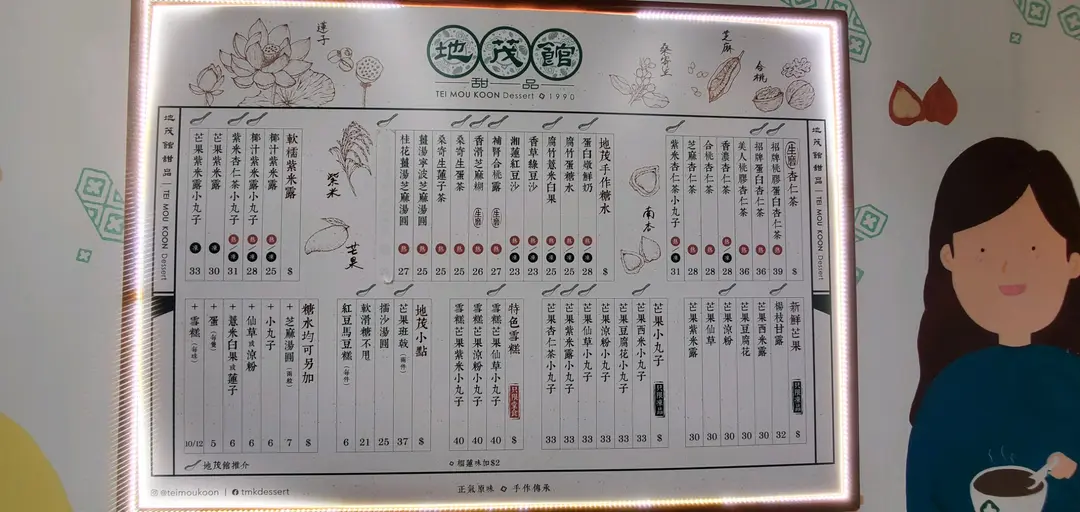 地茂館
甜品
TEI MOU KOON Dessert 1990
蓮子
桑寄生
芝麻
合桃
地茂館甜品 | TEI MOU KOON Dessert
生磨 杏仁茶 $
招牌桃膠蛋白杏仁茶 熱 39
招牌蛋白杏仁茶 熱 36
美人桃膠杏仁茶 熱 36
香濃杏仁茶 熱/凍 28
合桃杏仁茶 熱 28
芝麻杏仁茶 熱 28
紫米杏仁茶小丸子 熱/凍 31
南杏
地茂手作糖水 $
蛋白燉鮮奶 熱/凍 28
腐竹蛋糖水 熱/凍 25
腐竹薏米白果 熱/凍 25
香草綠豆沙 熱/凍 23
湘蓮紅豆沙 熱/凍 23
補腎合桃露 生磨 熱 27
香滑芝麻糊 生磨 熱 26
桑寄生蛋茶 熱 25
桑寄生蓮子茶 熱 25
薑湯寧波芝麻湯圓 熱 25
桂花薑湯芝麻湯圓 熱 27
紫米
芒果
軟糯紫米露 $
椰汁紫米露 熱/凍 25
椰汁紫米露小丸子 熱/凍 28
紫米杏仁茶小丸子 熱/凍 31
芒果紫米露 凍 30
芒果紫米露小丸子 凍 33
地茂館甜品 | TEI MOU KOON Dessert
新鮮芒果 只限凍品 $
楊枝甘露 32
芒果西米露 30
芒果豆腐花 30
芒果涼粉 30
芒果仙草 30
芒果紫米露 30
芒果小丸子 只限凍品 $
芒果西米小丸子 33
芒果豆腐花小丸子 33
芒果涼粉小丸子 33
芒果仙草小丸子 33
芒果紫米露小丸子 33
芒果杏仁茶小丸子 33
特色雪糕 只限堂食 $
雪糕芒果仙草小丸子 40
雪糕芒果涼粉小丸子 40
雪糕芒果紫米小丸子 40
地茂小點 $
芒果班戟(兩件) 37
擂沙湯圓 25
軟滑糖不甩 21
紅豆馬豆糕(每件) 6
糖水均可另加 $
+芝麻湯圓(兩粒) 7
+小丸子 6
+仙草或涼粉 6
+薏米白果或蓮子 6
+蛋(每隻) 5
+雪糕(每球) 10/12
地茂館推介
榴蓮味加$2
@teimoukoon | tmkdessert
正氣原味 手作傳承